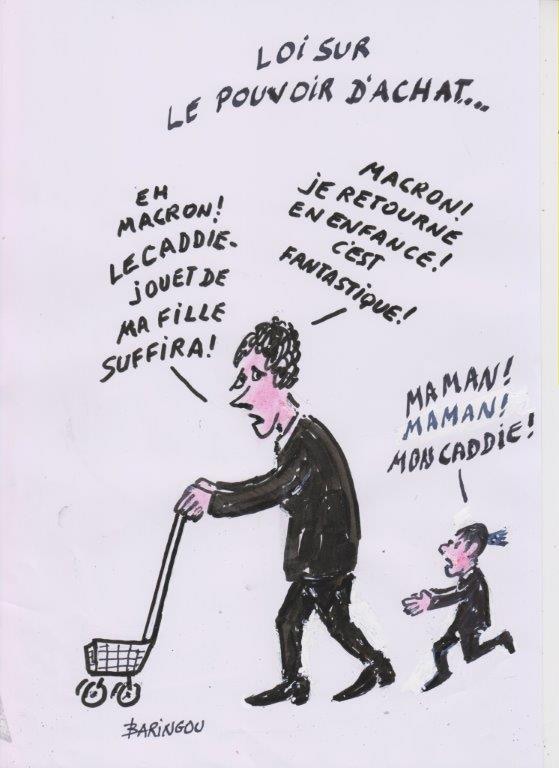 LOI SUR
LE POUVOIR D'ACHAT...
EH
MACRON!
LE CADDIE-
JOUET DE
MA FILLE
SUFFIRA!
MACRON!
JE RETOURNE
EN ENFANCE!
C'EST
FANTASTIQUE!
MAMAN!
MAMAN!
MON CADDIE!
BARINGOU